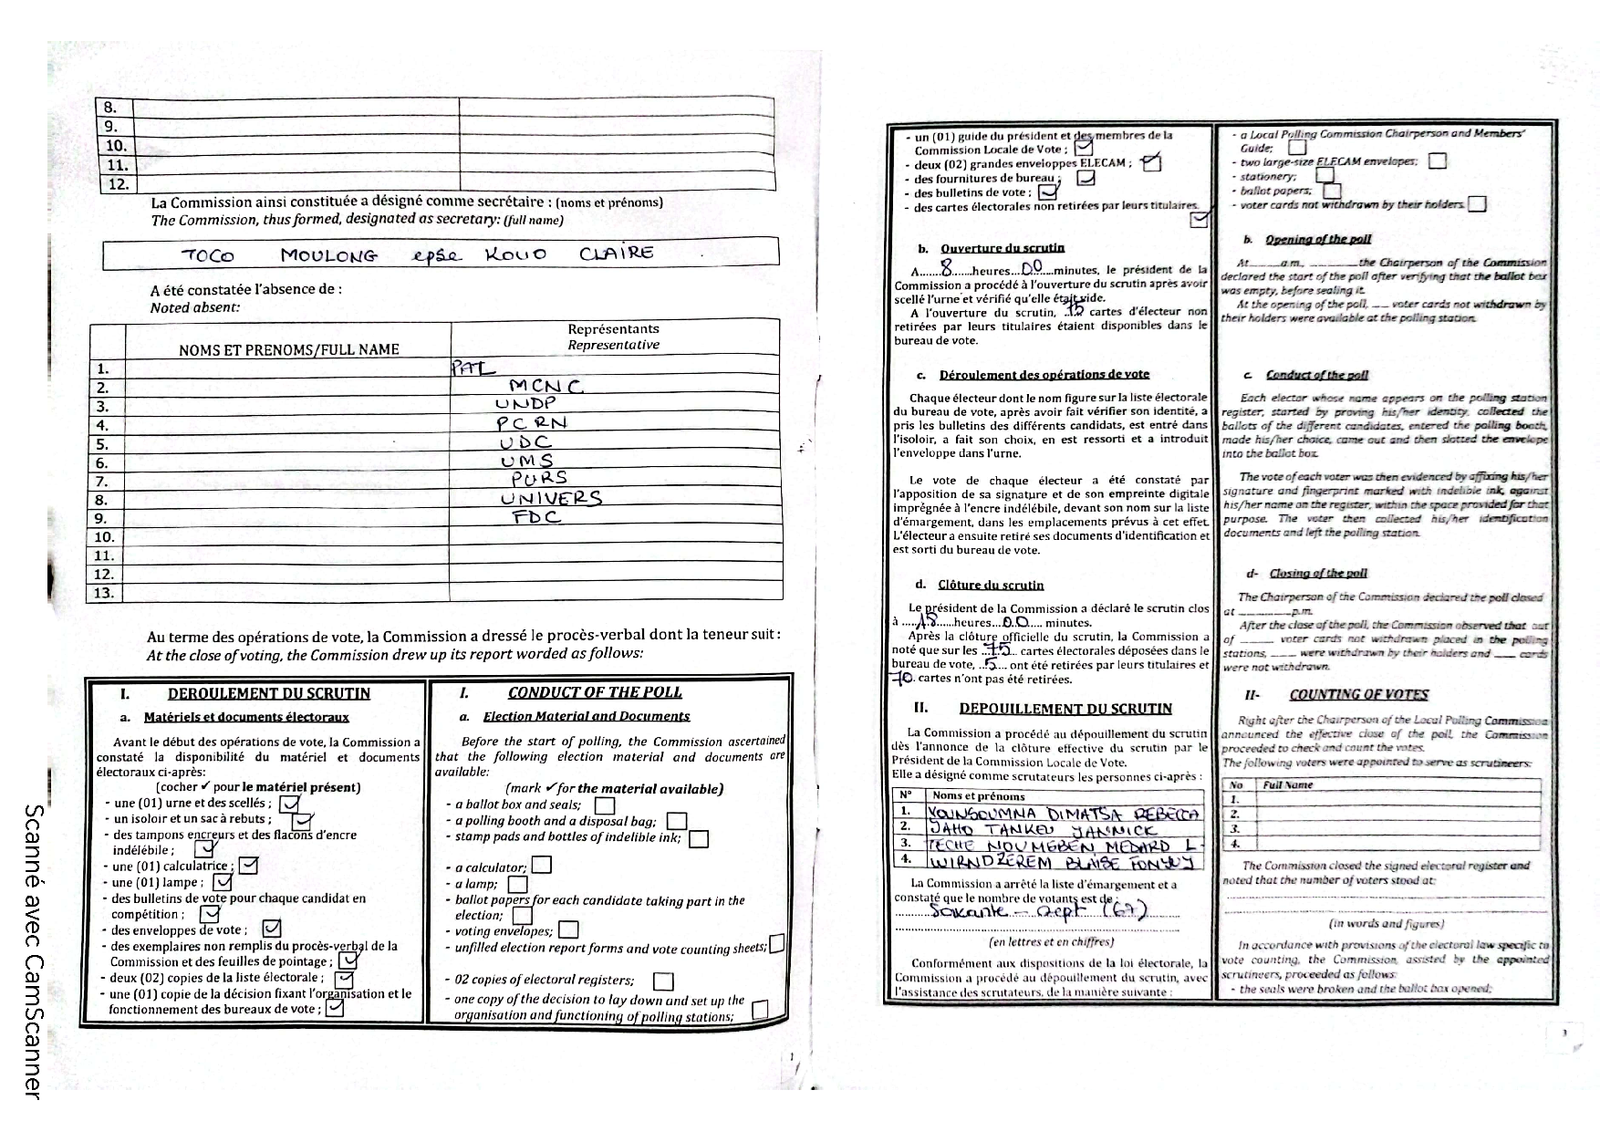 8.
9.
10.
11.
12.
La Commission ainsi constituée a désigné comme secrétaire : (noms et prénoms)
The Commission, thus formed, designated as secretary: (full name)
TOCO MOULONG epse KOUO CLAIRE
A été constatée l'absence de :
Noted absent:
NOMS ET PRENOMS/FULL NAME
Représentants
Representative
1. PAL
2. MCNC
3. UNDP
4. PCRN
5. UDC
6. UMS
7. PURS
8. UNIVERS
9. FDC
10.
11.
12.
13.
Au terme des opérations de vote, la Commission a dressé le procès-verbal dont la teneur suit :
At the close of voting, the Commission drew up its report worded as follows:
I. DEROULEMENT DU SCRUTIN
a. Matériels et documents électoraux
Avant le début des opérations de vote, la Commission a
constaté la disponibilité du matériel et documents
électoraux ci-après:
(cocher ✓ pour le matériel présent)
- une (01) urne et des scellés ; ☑
- un isoloir et un sac à rebuts ; ☑
- des tampons encreurs et des flacons d'encre
indélébile ; ☑
- une (01) calculatrice ; ☑
- une (01) lampe ; ☑
- des bulletins de vote pour chaque candidat en
compétition ; ☑
- des enveloppes de vote ; ☑
- des exemplaires non remplis du procès-verbal de la
Commission et des feuilles de pointage ; ☑
- deux (02) copies de la liste électorale ; ☑
- une (01) copie de la décision fixant l'organisation et le
fonctionnement des bureaux de vote ; ☑
I. CONDUCT OF THE POLL
a. Election Material and Documents
Before the start of polling, the Commission ascertained
that the following election material and documents are
available:
(mark ✓ for the material available)
- a ballot box and seals; ☐
- a polling booth and a disposal bag; ☐
- stamp pads and bottles of indelible ink; ☐
- a calculator; ☐
- a lamp; ☐
- ballot papers for each candidate taking part in the
election; ☐
- voting envelopes; ☐
- unfilled election report forms and vote counting sheets; ☐
- 02 copies of electoral registers; ☐
- one copy of the decision to lay down and set up the
organisation and functioning of polling stations; ☐
1
Scanné avec CamScanner
- un (01) guide du président et des membres de la
Commission Locale de Vote ; ☑
- deux (02) grandes enveloppes ELECAM ; ☑
- des fournitures de bureau ; ☑
- des bulletins de vote ; ☑
- des cartes électorales non retirées par leurs titulaires. ☑
b. Ouverture du scrutin
A.......8......heures...00...minutes, le président de la
Commission a procédé à l'ouverture du scrutin après avoir
scellé l'urne et vérifié qu'elle était vide.
A l'ouverture du scrutin, ..75 cartes d'électeur non
retirées par leurs titulaires étaient disponibles dans le
bureau de vote.
c. Déroulement des opérations de vote
Chaque électeur dont le nom figure sur la liste électorale
du bureau de vote, après avoir fait vérifier son identité, a
pris les bulletins des différents candidats, est entré dans
l'isoloir, a fait son choix, en est ressorti et a introduit
l'enveloppe dans l'urne.
Le vote de chaque électeur a été constaté par
l'apposition de sa signature et de son empreinte digitale
imprégnée à l'encre indélébile, devant son nom sur la liste
d'émargement, dans les emplacements prévus à cet effet.
L'électeur a ensuite retiré ses documents d'identification et
est sorti du bureau de vote.
d. Clôture du scrutin
Le président de la Commission a déclaré le scrutin clos
à .....18......heures...00.... minutes.
Après la clôture officielle du scrutin, la Commission a
noté que sur les ..75.. cartes électorales déposées dans le
bureau de vote, ..5.. ont été retirées par leurs titulaires et
70. cartes n'ont pas été retirées.
II. DEPOUILLEMENT DU SCRUTIN
La Commission a procédé au dépouillement du scrutin
dès l'annonce de la clôture effective du scrutin par le
Président de la Commission Locale de Vote.
Elle a désigné comme scrutateurs les personnes ci-après :
N° Noms et prénoms
1. YOUNGOUMNA DIMATSA REBECCA
2. JAHO TANKEU YANNICK
3. TECHE NOUMEBEN MEDARD L-
4. WIRNDZEREM BLAISE FONYUY
La Commission a arrêté la liste d'émargement et a
constaté que le nombre de votants est de :
Soixante - sept (67)
(en lettres et en chiffres)
Conformément aux dispositions de la loi électorale, la
Commission a procédé au dépouillement du scrutin, avec
l'assistance des scrutateurs, de la manière suivante :
- a Local Polling Commission Chairperson and Members'
Guide; ☐
- two large-size ELECAM envelopes; ☐
- stationery; ☐
- ballot papers; ☐
- voter cards not withdrawn by their holders. ☐
b. Opening of the poll
At_____a.m. _________the Chairperson of the Commission
declared the start of the poll after verifying that the ballot box
was empty, before sealing it.
At the opening of the poll, ___ voter cards not withdrawn by
their holders were available at the polling station.
c. Conduct of the poll
Each elector whose name appears on the polling station
register, started by proving his/her identity, collected the
ballots of the different candidates, entered the polling booth,
made his/her choice, came out and then slotted the envelope
into the ballot box.
The vote of each voter was then evidenced by affixing his/her
signature and fingerprint marked with indelible ink, against
his/her name on the register, within the space provided for that
purpose. The voter then collected his/her identification
documents and left the polling station.
d- Closing of the poll
The Chairperson of the Commission declared the poll closed
at __________p.m.
After the close of the poll, the Commission observed that out
of ______ voter cards not withdrawn placed in the polling
stations, ____ were withdrawn by their holders and ____ cards
were not withdrawn.
II- COUNTING OF VOTES
Right after the Chairperson of the Local Polling Commission
announced the effective close of the poll, the Commission
proceeded to check and count the votes.
The following voters were appointed to serve as scrutineers:
No Full Name
1.
2.
3.
4.
The Commission closed the signed electoral register and
noted that the number of voters stood at:
(in words and figures)
In accordance with provisions of the electoral law specific to
vote counting, the Commission, assisted by the appointed
scrutineers, proceeded as follows:
- the seals were broken and the ballot box opened;
3